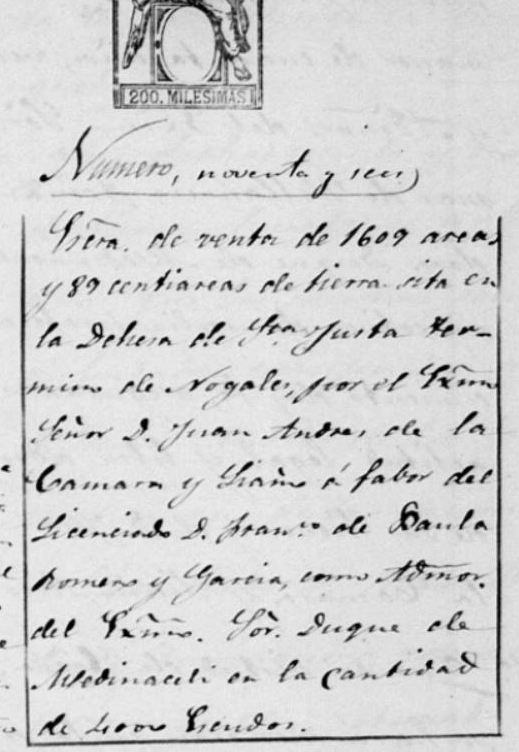 200. MILESIMAS
Numero, noventa y seis
Escra. de venta de 1609 areas
y 89 centiareas de tierra sita en
la Dehesa de Sta. Justa ter-
mino de Nogales, por el Exmo
Señor D. Juan Andres de la
Camara y Liaño á fabor del
Licenciado D. Franco. de Paula
Romero y Garcia, como Admor.
del Exmo. Sor. Duque de
Medinaceli en la cantidad
de 4000 Escudos.